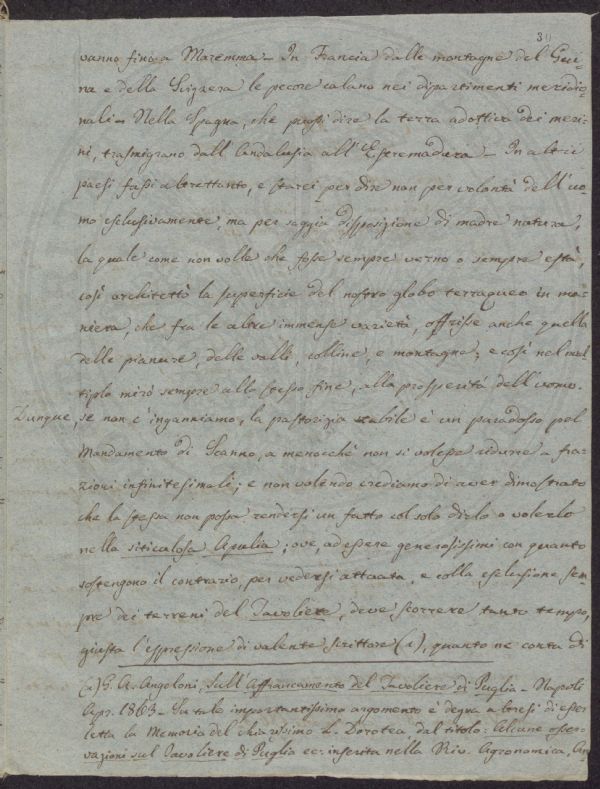 30
vanno fino a Maremma – In Francia dalle montagne del Giu-
ra e della Svizzera le pecore calano nei dipartimenti meridio-
nali – Nella Spagna, che puossi dire la terra adottiva dei meri-
ni, trasmigrano dall'Andalusia all'Estremadura – In altri
paesi fassi altrettanto, e starei per dire non per volontà dell'uo-
mo esclusivamente, ma per saggia disposizione di madre natura,
la quale come non volle che fosse sempre verno o sempre està,
così architettò la superficie del nostro globo terraqueo in ma-
niera, che fra le altre immense varietà, offrisse anche quella
delle pianure, delle valli, colline, e montagne; e così nel mul
tiplo mirò sempre allo stesso fine, alla prosperità dell'uomo.
Dunque, se non c'inganniamo, la pastorizia stabile è un paradosso pel
Mandamento di Scanno, a menocchè non si volesse ridurre a fra-
zioni infinitesimali; e non volendo crediamo di aver dimostrato
che la stessa non possa rendersi un fatto col solo dirlo o volerlo
nella siticulosa Apulia; ove, ad essere generosissimi con quanto
sostengono il contrario, per vedersi attuata, e colla esclusione sem
pre dei terreni del Tavoliere, deve scorrere tanto tempo,
giusta l'espressione di valente scrittore (1), quanto ne conta di
(1) G. A. Angeloni, sull'Affrancamento del Tavoliere di Puglia – Napoli
Apr. 1863 – Su tale importantissimo argomento è degna altresì di esser
letta la Memoria del chiarissimo L. Dorotea dal titolo: Alcune osser-
vazioni sul Tavoliere di Puglia ec: inserita nella Riv. Agronomica, An